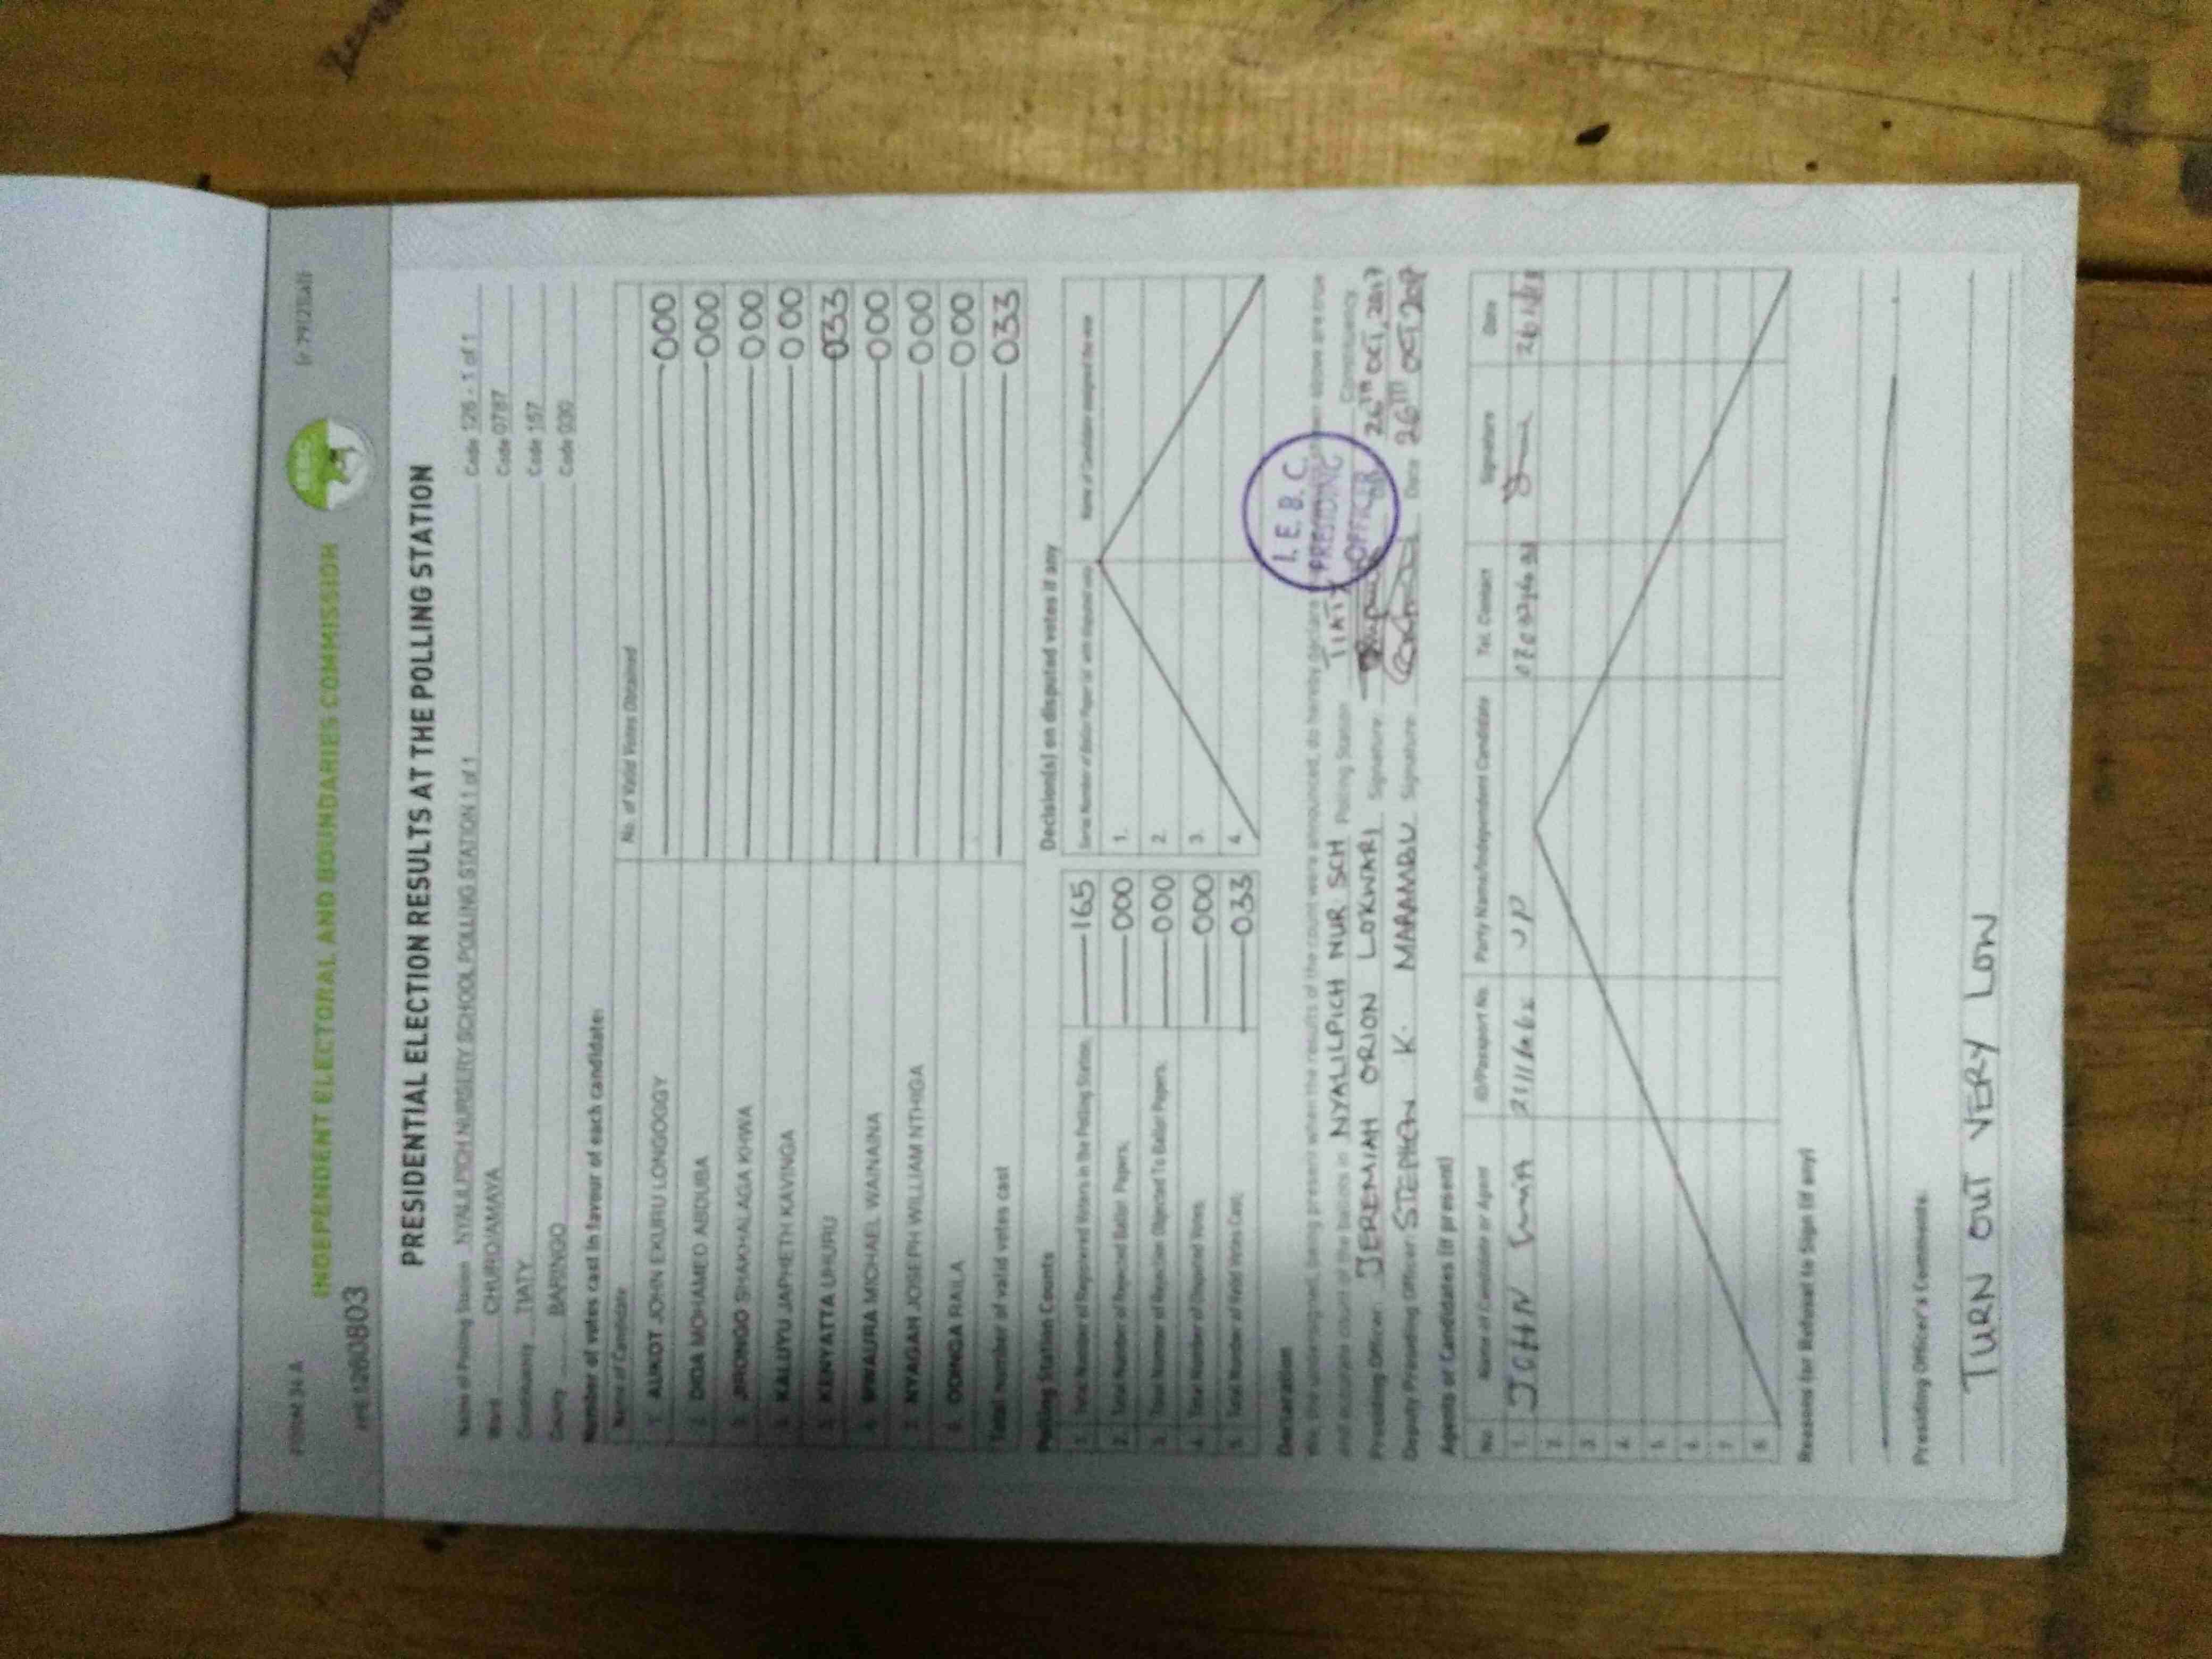 FORM 34 A
INDEPENDENT ELECTORAL AND BOUNDARIES COMMISSION
IEBC
PRESIDENTIAL ELECTION RESULTS AT THE POLLING STATION
Name of Polling Station NYALILPICH NURSERY SCHOOL POLLING STATION 1 of 1 Code 126 - 1 of 1
Ward CHURO/AMAYA Code 0787
Constituency TIATY Code 157
County BARINGO Code 030
Number of votes cast in favour of each candidate:
Name of Candidate No. of Valid Votes Obtained
1. AUKOT JOHN EKURU LONGOGGY 000
2. DIDA MOHAMED ABDUBA 000
3. JIRONGO SHAKHALAGA KHWA 000
4. KALUYU JAPHETH KAVINGA 000
5. KENYATTA UHURU 033
6. MWAURA MICHAEL WAINAINA 000
7. NYAGAH JOSEPH WILLIAM NTHIGA 000
8. ODINGA RAILA 000
Total number of valid votes cast 033
Polling Station Counts
Decision(s) on disputed votes if any
1. Total Number of Registered Voters in the Polling Station: 165
2. Total Number of Rejected Ballot Papers: 000 1.
3. Total Number of Rejection Objected To Ballot Papers: 000 2.
4. Total Number of Disputed Votes: 000 3.
5. Total Number of Valid Votes Cast: 033 4.
Declaration
We, the undersigned, being present when the results of the count were announced, do hereby declare above are true
and accurate count of the ballots in NYALILPICH NUR SCH Polling Station TIATY Constituency
Presiding Officer JEREMIAH ORION LOKWARI Signature 26TH OCT, 2017
Deputy Presiding Officer STEPHEN K. MARAMBU Signature Date 26TH OCT 2017
I.E.B.C.
PRESIDING
OFFICER
Agents of Candidates (if present)
No. Name of Candidate or Agent ID/Passport No. Party Name/Independent Candidate Tel. Contact Signature Date
1. JOHN JP
2.
3.
4.
5.
6.
7.
8.
Reasons for Refusal to Sign (if any)
Presiding Officer's Comments:
TURN OUT VERY LOW